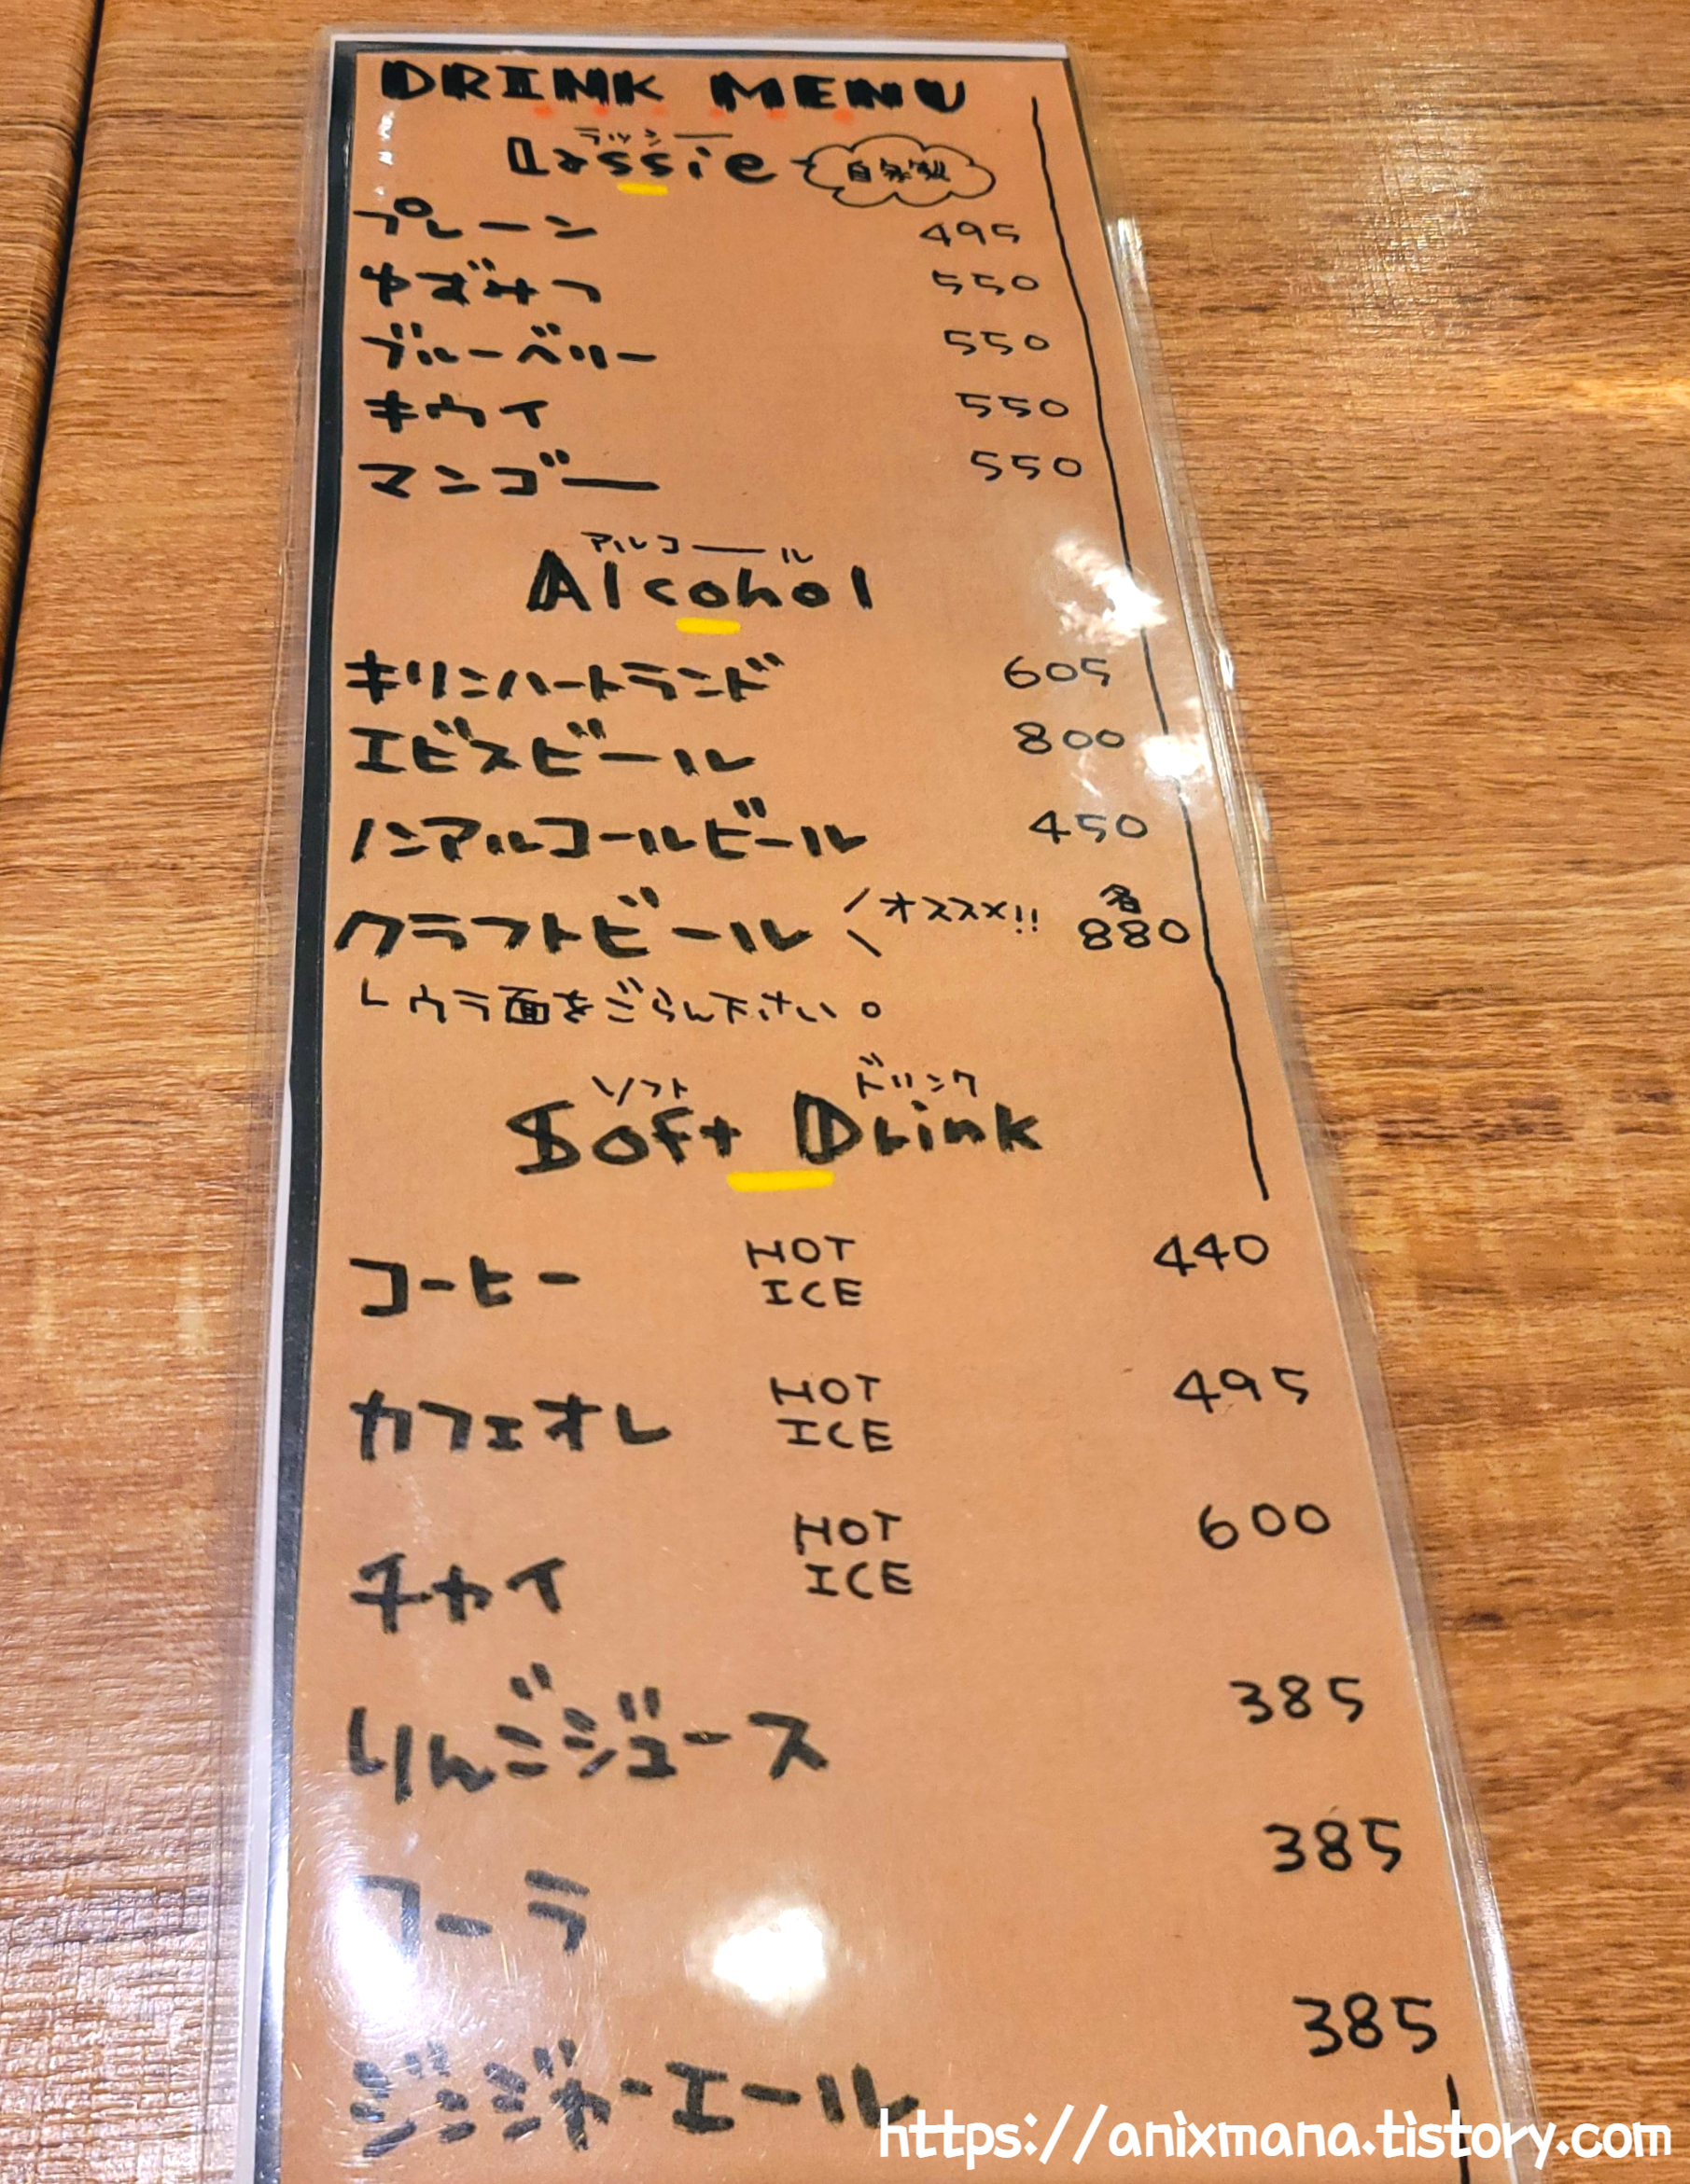 DRINK MENU
ラッシー
Lassie 自家製
プレーン 495
ゆずみつ 550
ブルーベリー 550
キウイ 550
マンゴー 550
アルコール
Alcohol
キリンハートランド 605
エビスビール 800
ノンアルコールビール 450
クラフトビール オススメ!! 各880
ウラ面をごらん下さい。
ソフト ドリンク
Soft Drink
コーヒー HOT ICE 440
カフェオレ HOT ICE 495
チャイ HOT ICE 600
りんごジュース 385
コーラ 385
ジンジャーエール 385
https://anixmana.tistory.com